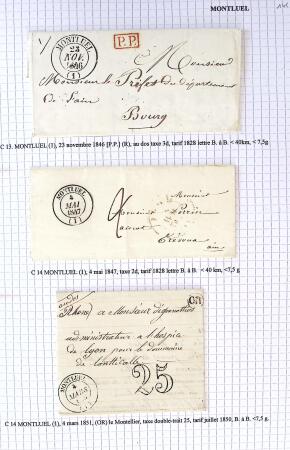 MONTLUEL
MONTLUEL
23
NOV.
1846
(1)
P.P.
Monsieur
Monsieur le Préfet du département
De l'ain
Bourg
C 13. MONTLUEL (1), 23 novembre 1846 [P.P.] (R), au dos taxe 3d, tarif 1828 lettre B. à B. < 40km, < 7,5g
MONTLUEL
4
MAI
1847
(1)
2
Monsieur
Monsieur Perrin
Trévoux
ain
C 14 MONTLUEL (1), 4 mai 1847, taxe 2d, tarif 1828 lettre B. à B. < 40 km, <7,5 g
OR
(Rhone) a Monsieur
administrateur a l'hospice
de Lyon pour le domaine
MONTLUEL
4
MARS
25
C 14 MONTLUEL (1), 4 mars 1851, (OR) le Montellier, taxe double-trait 25, tarif juillet 1850, B. à B. <7,5 g.